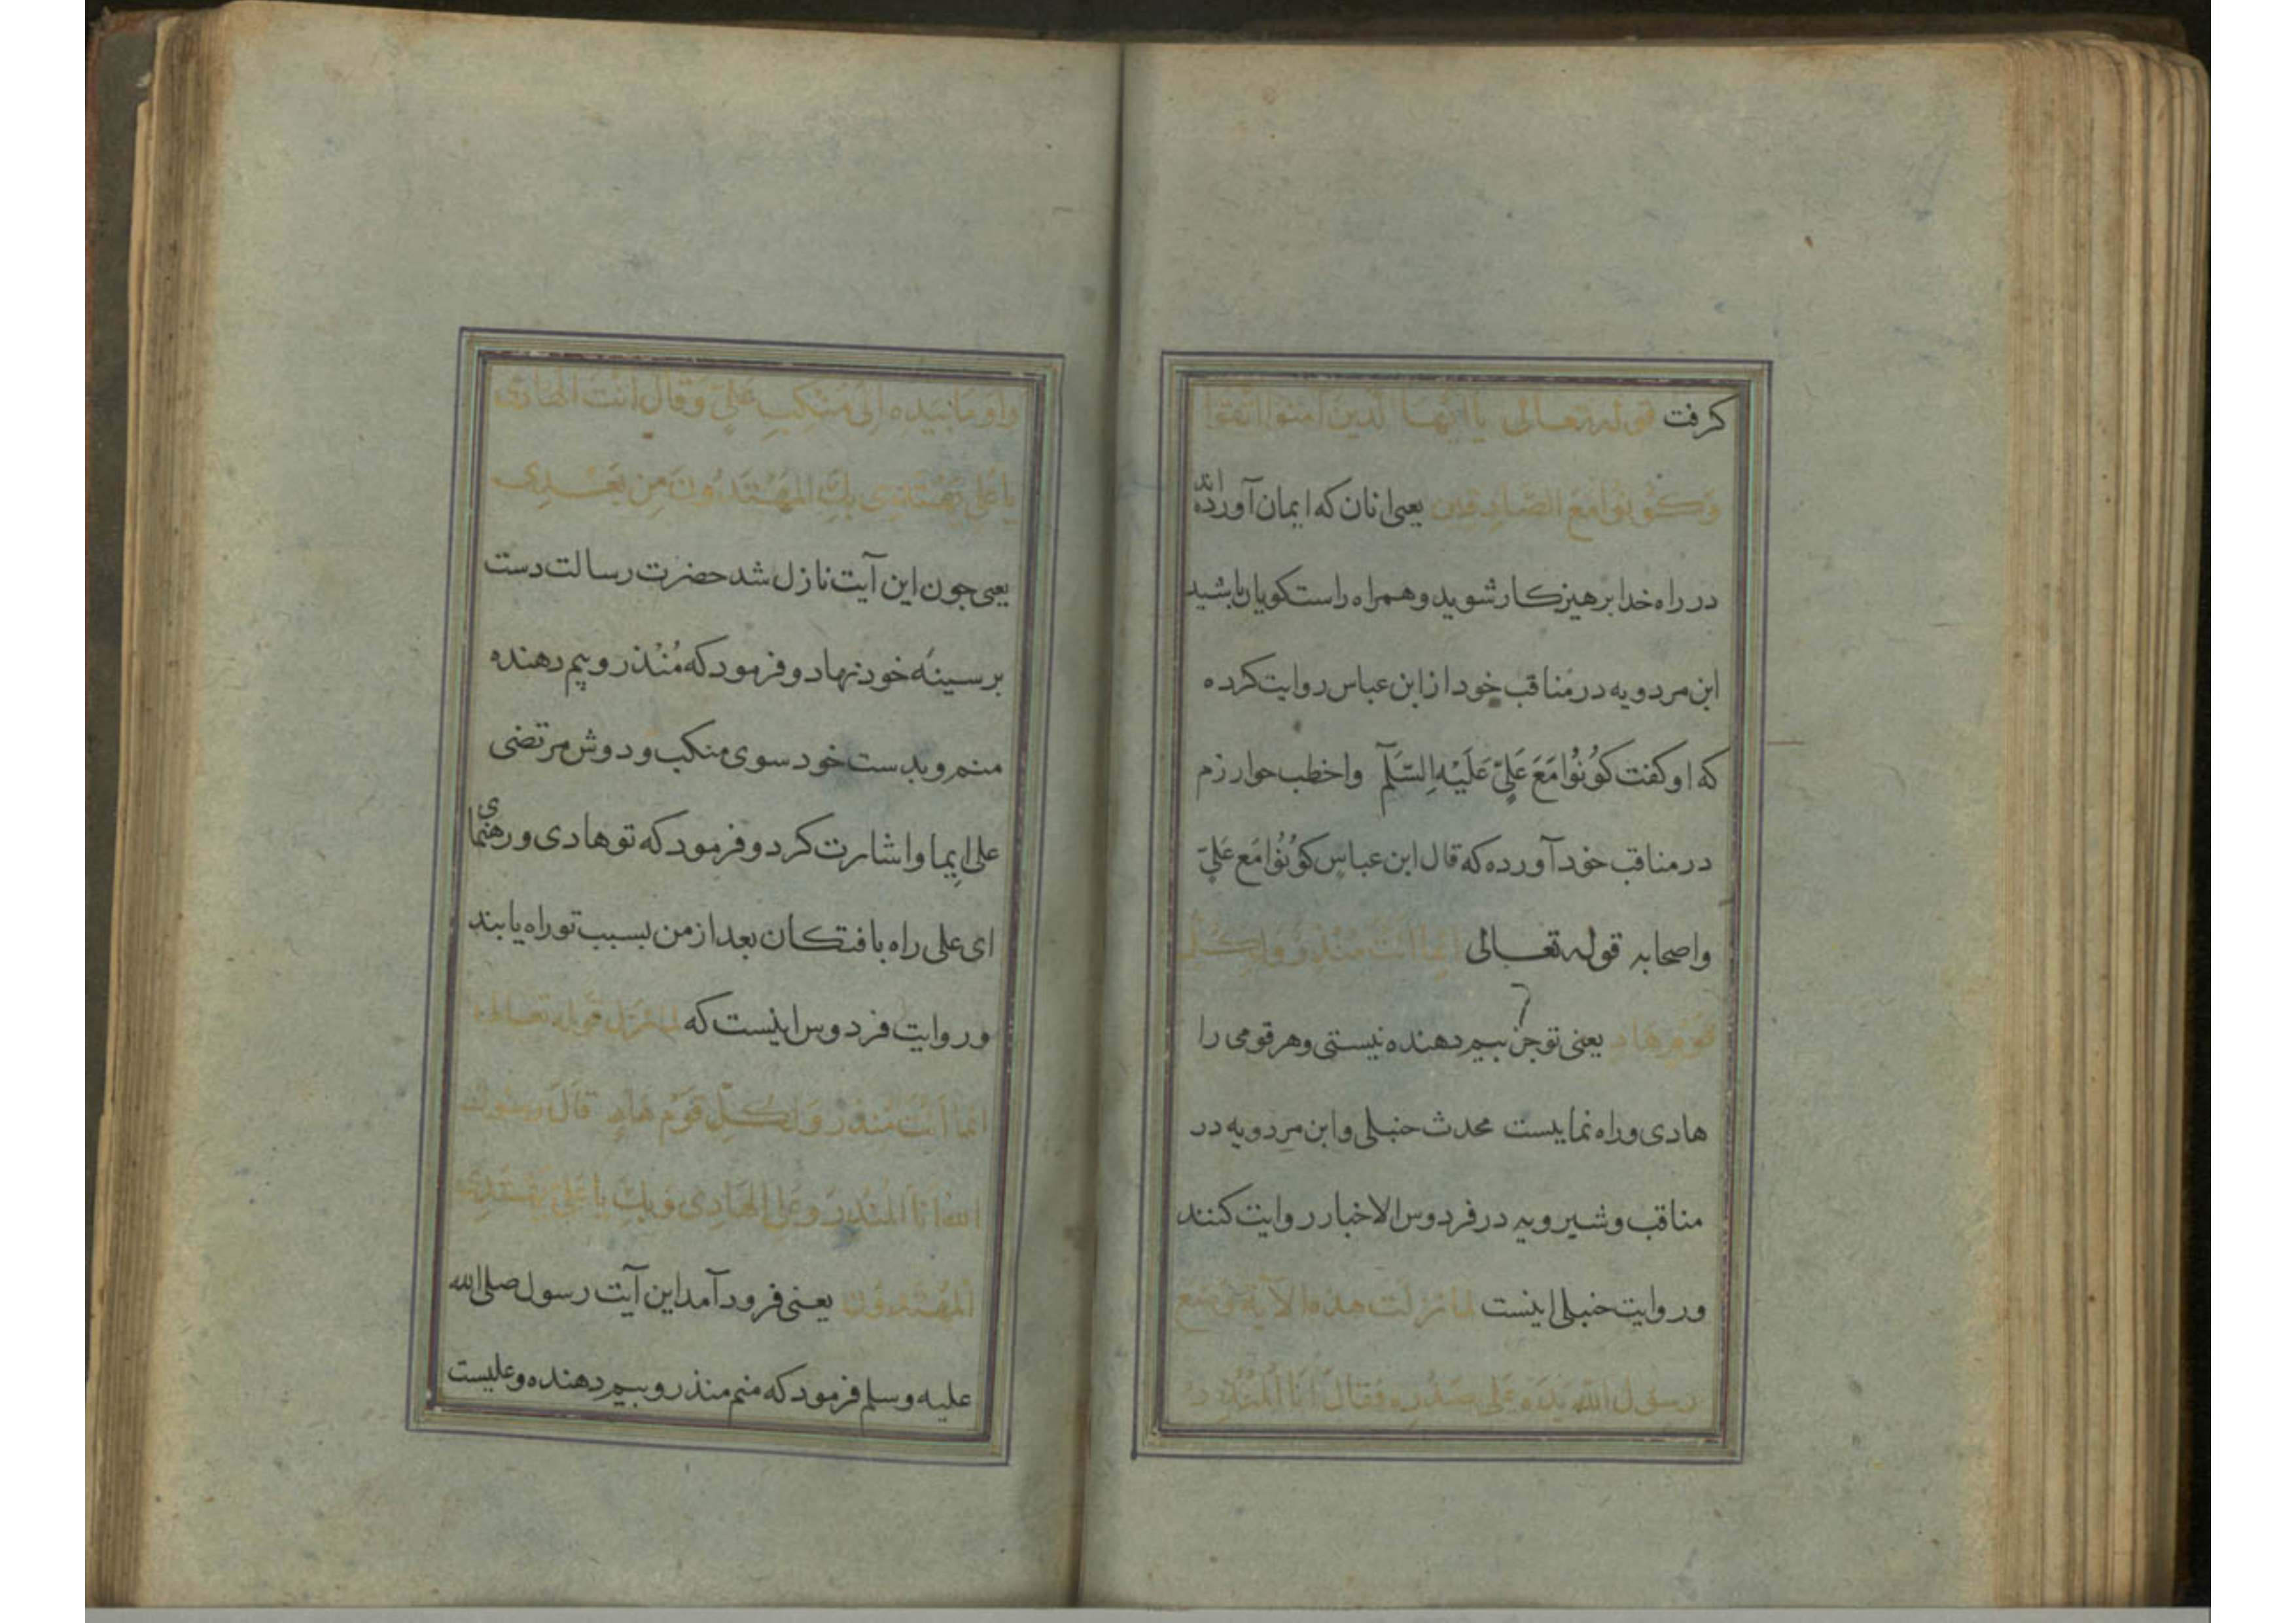 كرفت قوله تعالى يا ايها الذين آمنوا اتقوا
وَكُونُوا مَعَ الصَّادِقين يعنی انان كه ايمان آورده اند
در راه خدا برهيزكار شويد وهمراه راستكويان باشيد
ابن مردويه در مناقب خود از ابن عباس روايت كرده
كه او كفت كُونُوا مَعَ عَلِيّ عَلَيْهِ السَّلَم واخطب خوارزم
در مناقب خود آورده كه قال ابن عباسٍ كُونُوا مَع عَلِيّ
واصحابه قوله تعالى اِنَّما اَنْتَ مُنْذِرٌ وَلِكُلِّ
قَوْمٍ هَادٍ يعنی تو جز بيم دهنده نيستی وهر قومی را
هادی وراه نماييست محدث حنبلی وابن مردويه در
مناقب وشيرويه در فردوس الاخبار روايت كنند
وروايت حنبلی اينست لما نزلت هذه الآية وضع
رسول الله يَدَهُ عَلى صَدْرِهِ فَقَالَ اَنَا المُنْذِر
وَاَوْمَا بِيَدِهِ اِلَى مَنْكِبِ عَلِيّ وَقَالَ اَنْتَ الهَادِی
يا عَلِی يَهْتَدِی بِكَ المُهْتَدُونَ مِن بَعْدِی
يعنی جون اين آيت نازل شد حضرت رسالت دست
بر سينهٔ خود نهاد وفرمود كه مُنْذر وبيم دهنده
منم وبدست خود سوی منكب ودوش مرتضی
علی ايما واشارت كرد وفرمود كه تو هادی ورهنمای
ای علی راه يافتكان بعد از من بسبب تو راه يابند
وروايت فردوس اينست كه لما نزل قوله تعالى
انما اَنْتَ مُنْذِر وَلِكُلِّ قَوْمٍ هَادٍ قَالَ رسول
الله اَنَا المُنْذِرُ وعَلی الهَادِی وَبِكَ يا عَلی يَهْتَدِی
المُهْتَدُون يعنی فرود آمد اين آيت رسول صلی الله
عليه وسلم فرمود كه منم منذر وبيم دهنده وعليست